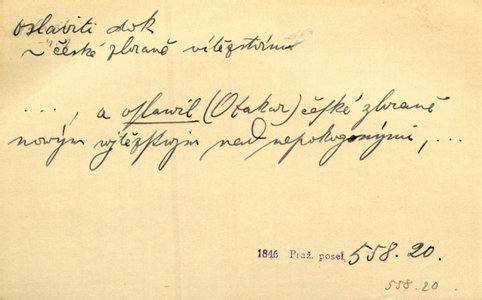 oslaviti dok
~ české zbraně vítězstvím
..., a oslawil (Otakar) české zbraně
nowým wjtězstwjm nad nepokogenými, ...
1846 Praž. posel 558.20.
558.20